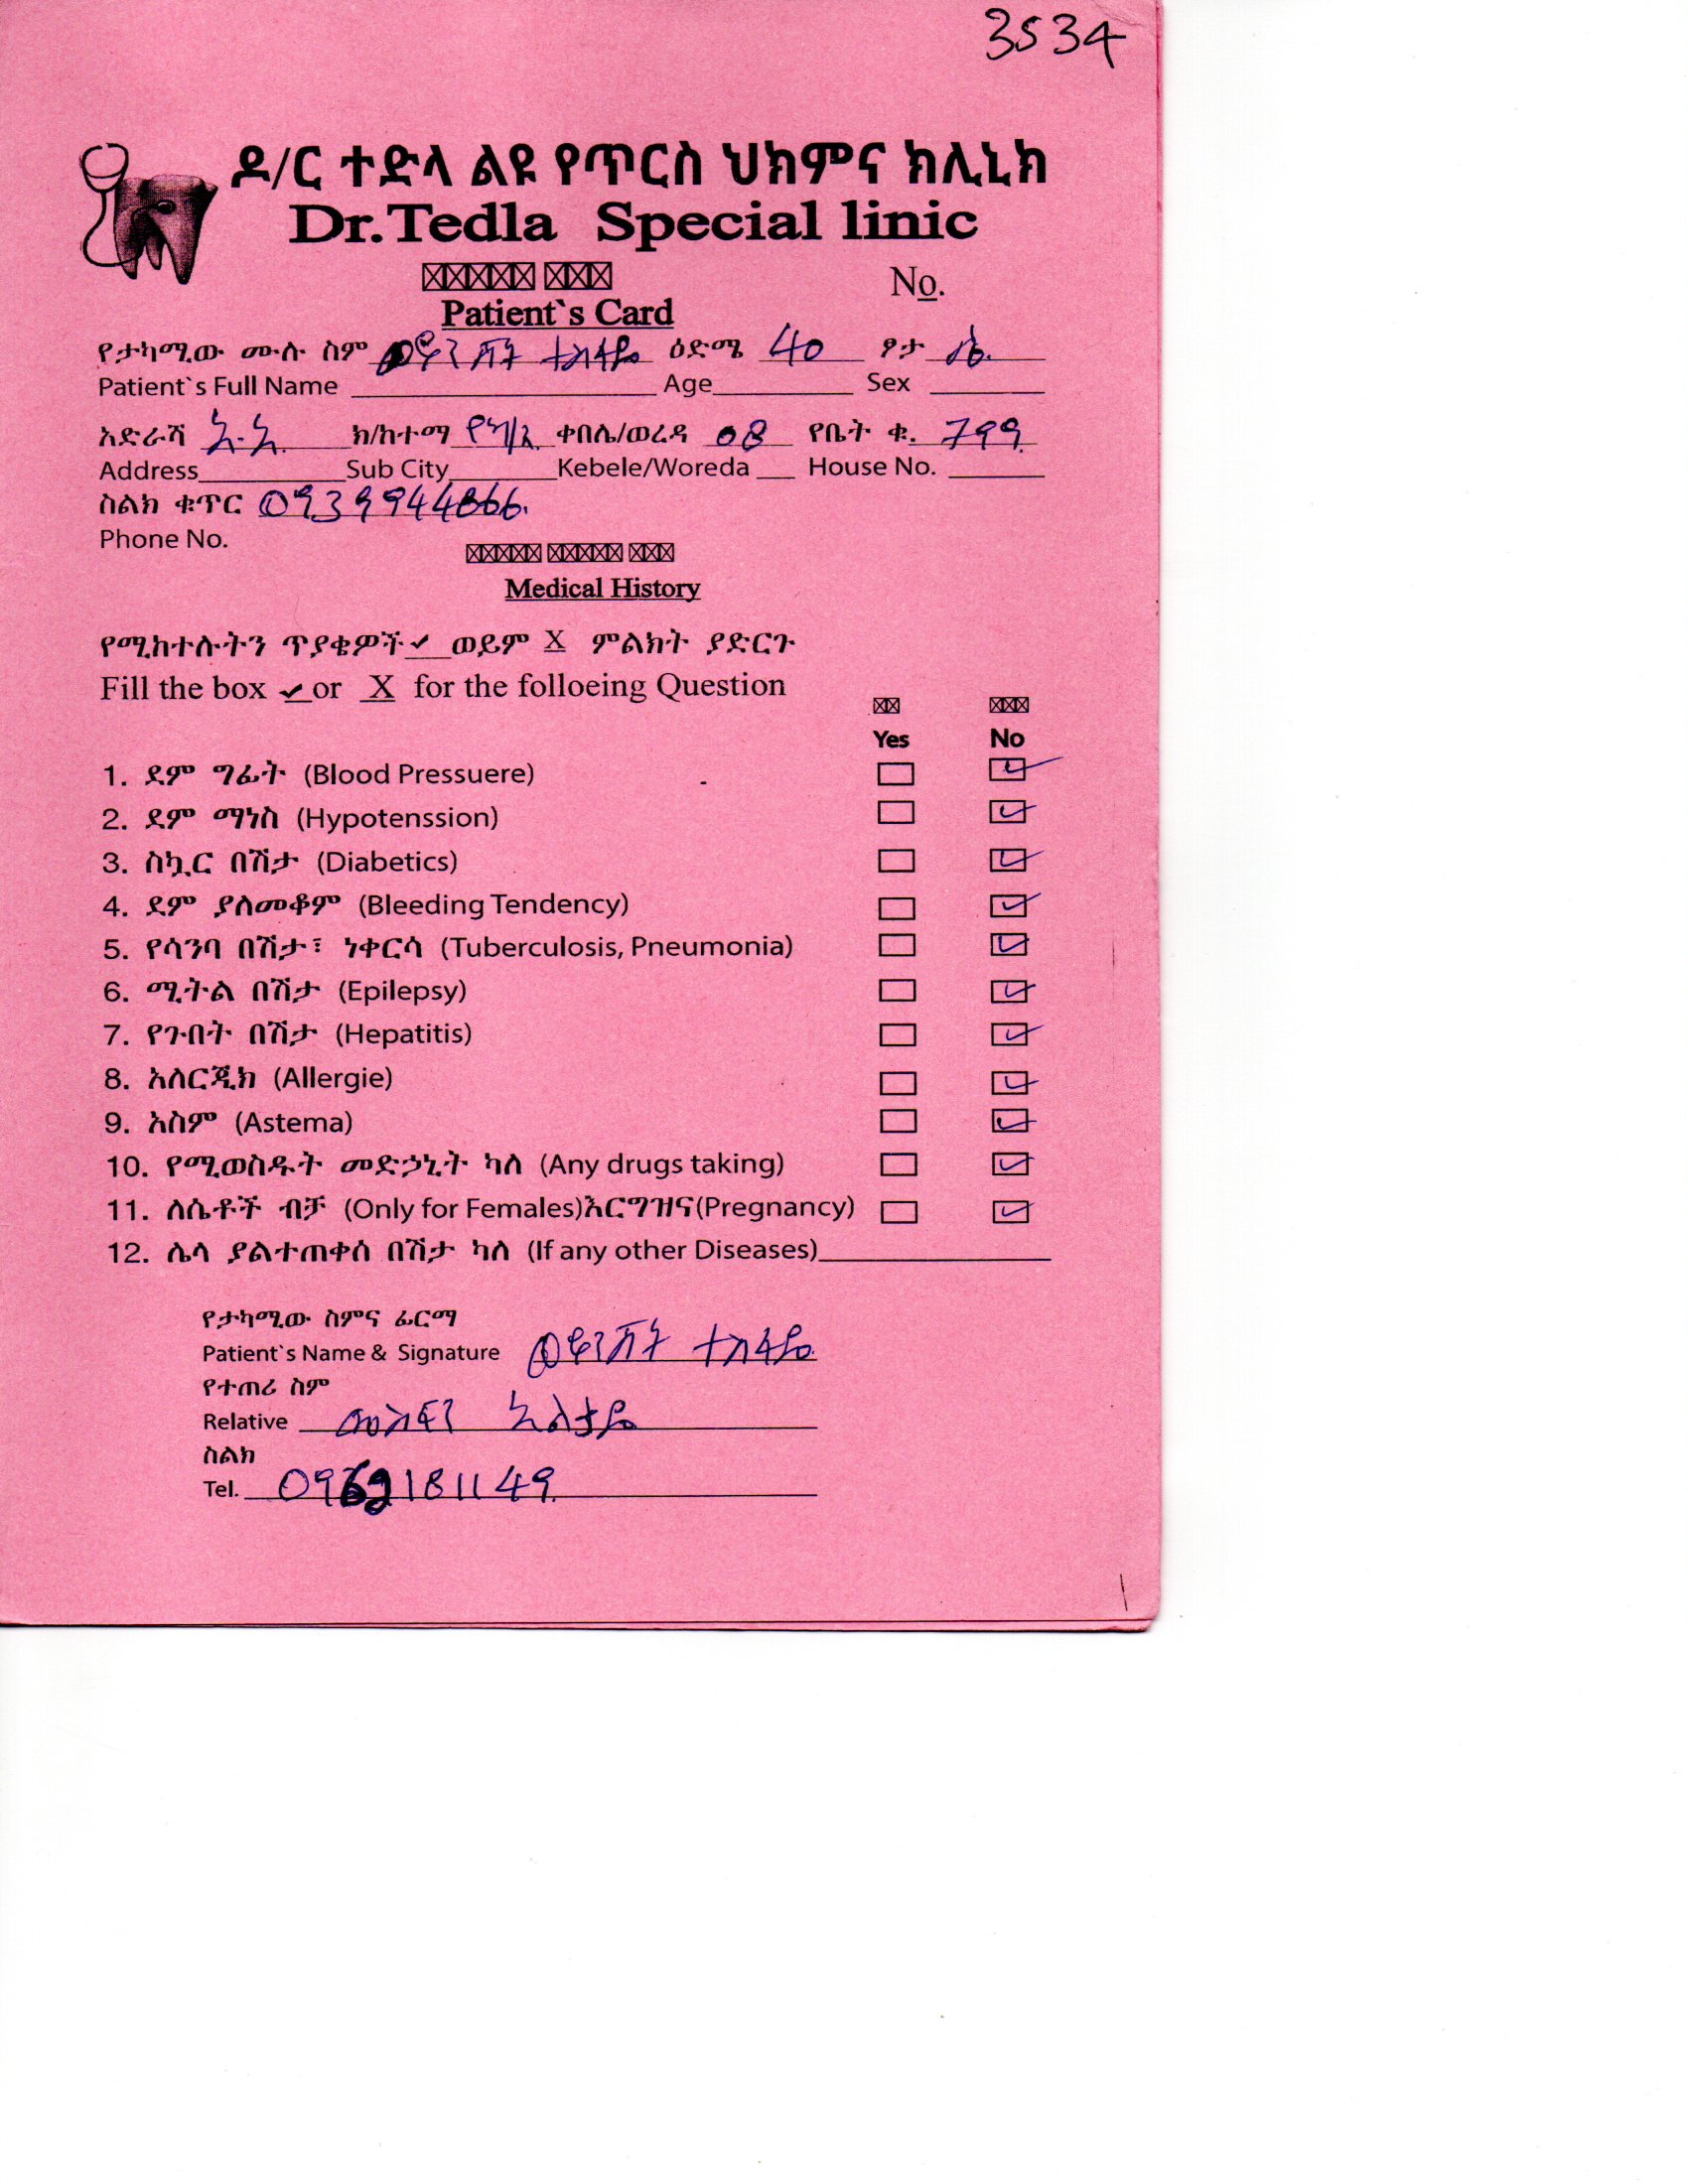 3534
ዶ/ር ተድላ ልዩ የጥርስ ህክምና ክሊኒክ
Dr.Tedla Special linic
No.
Patient`s Card
የታካሚው ሙሉ ስም ወይንሸት ተስፋዬ ዕድሜ 40 ፆታ ሴ.
Patient`s Full Name Age Sex
አድራሻ አ.አ. ክ/ከተማ ቀበሌ/ወረዳ 08 የቤት ቁ. 799
Address Sub City Kebele/Woreda House No.
ስልክ ቁጥር 0939944866.
Phone No.
Medical History
የሚከተሉትን ጥያቄዎች ✓ ወይም X ምልክት ያድርጉ
Fill the box ✓ or X for the folloeing Question
Yes No
1. ደም ግፊት (Blood Pressuere) ✓
2. ደም ማነስ (Hypotenssion) ✓
3. ስኳር በሽታ (Diabetics) ✓
4. ደም ያለመቆም (Bleeding Tendency) ✓
5. የሳንባ በሽታ፣ ነቀርሳ (Tuberculosis, Pneumonia) ✓
6. ሚትል በሽታ (Epilepsy) ✓
7. የጉበት በሽታ (Hepatitis) ✓
8. አለርጂክ (Allergie) ✓
9. አስም (Astema) ✓
10. የሚወስዱት መድኃኒት ካለ (Any drugs taking) ✓
11. ለሴቶች ብቻ (Only for Females)እርግዝና(Pregnancy) ✓
12. ሌላ ያልተጠቀሰ በሽታ ካለ (If any other Diseases)
የታካሚው ስምና ፊርማ
Patient`s Name & Signature ወይንሸት ተስፋዬ
የተጠሪ ስም
Relative መስፍን አልታዬ
ስልክ
Tel.